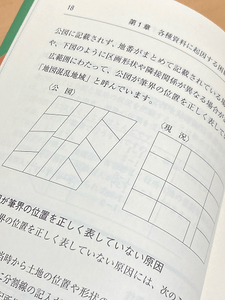 18
第1章 各種資料に起因する困
公図に記載されず、地番がまとめて記載されている場
や、下図のように区画形状や隣接関係が異なる場合が
広範囲にわたって、公図が筆界の位置を正しく表して
「地図混乱地域」と呼んでいます。
（公 図）
（現 況）
が筆界の位置を正しく表していない原因
界の位置を正しく表していない原因には、次の
当時から土地の位置や形状の
に分割線の記入